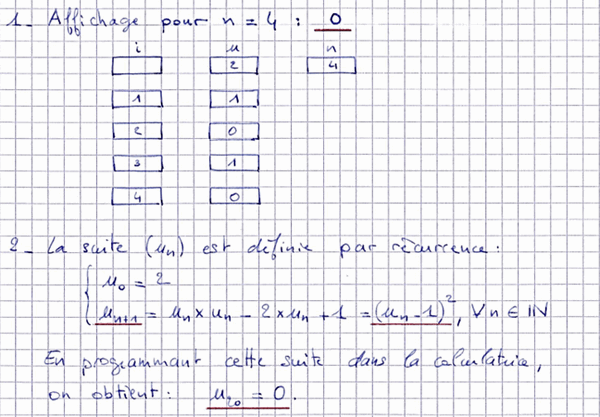 1- Affichage pour n = 4 : 0
i u n
2 4
1 1
2 0
3 1
4 0
2- La suite (un) est définie par récurrence :
u0 = 2
un+1 = un x un - 2 x un + 1 = (un - 1)², ∀n ∈ IN
En programmant cette suite dans la calculatrice,
on obtient : u20 = 0.